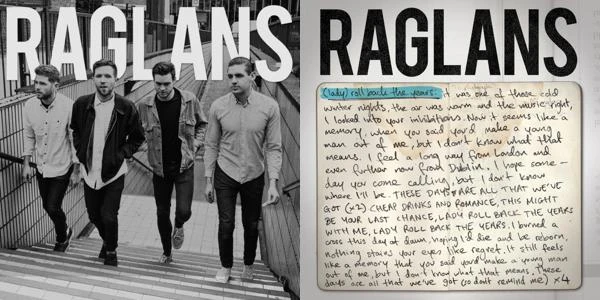 RAGLANS
RAGLANS
(lady) roll back the years: it was one of those cold
winter nights, the air was warm and the music right,
I looked into your inhibitions. Now it seems like a
memory, when you said you'd make a young
man out of me, but I don't know what that
means. I feel a long way from London and
even further now from Dublin. I hope some-
day you come calling, but I don't know
where I'll be. THESE DAYS ARE ALL THAT WE'VE
GOT (x2) CHEAP DRINKS AND ROMANCE, THIS MIGHT
BE YOUR LAST CHANCE, LADY ROLL BACK THE YEARS
WITH ME, LADY ROLL BACK THE YEARS. I burned a
cross this day at dawn, hoping I'd die and be reborn,
nothing stains your eyes like regret. It still feels
like a memory that you said you'd make a young man
out of me, but I don't know what that means. These
days are all that we've got (so don't remind me) x4